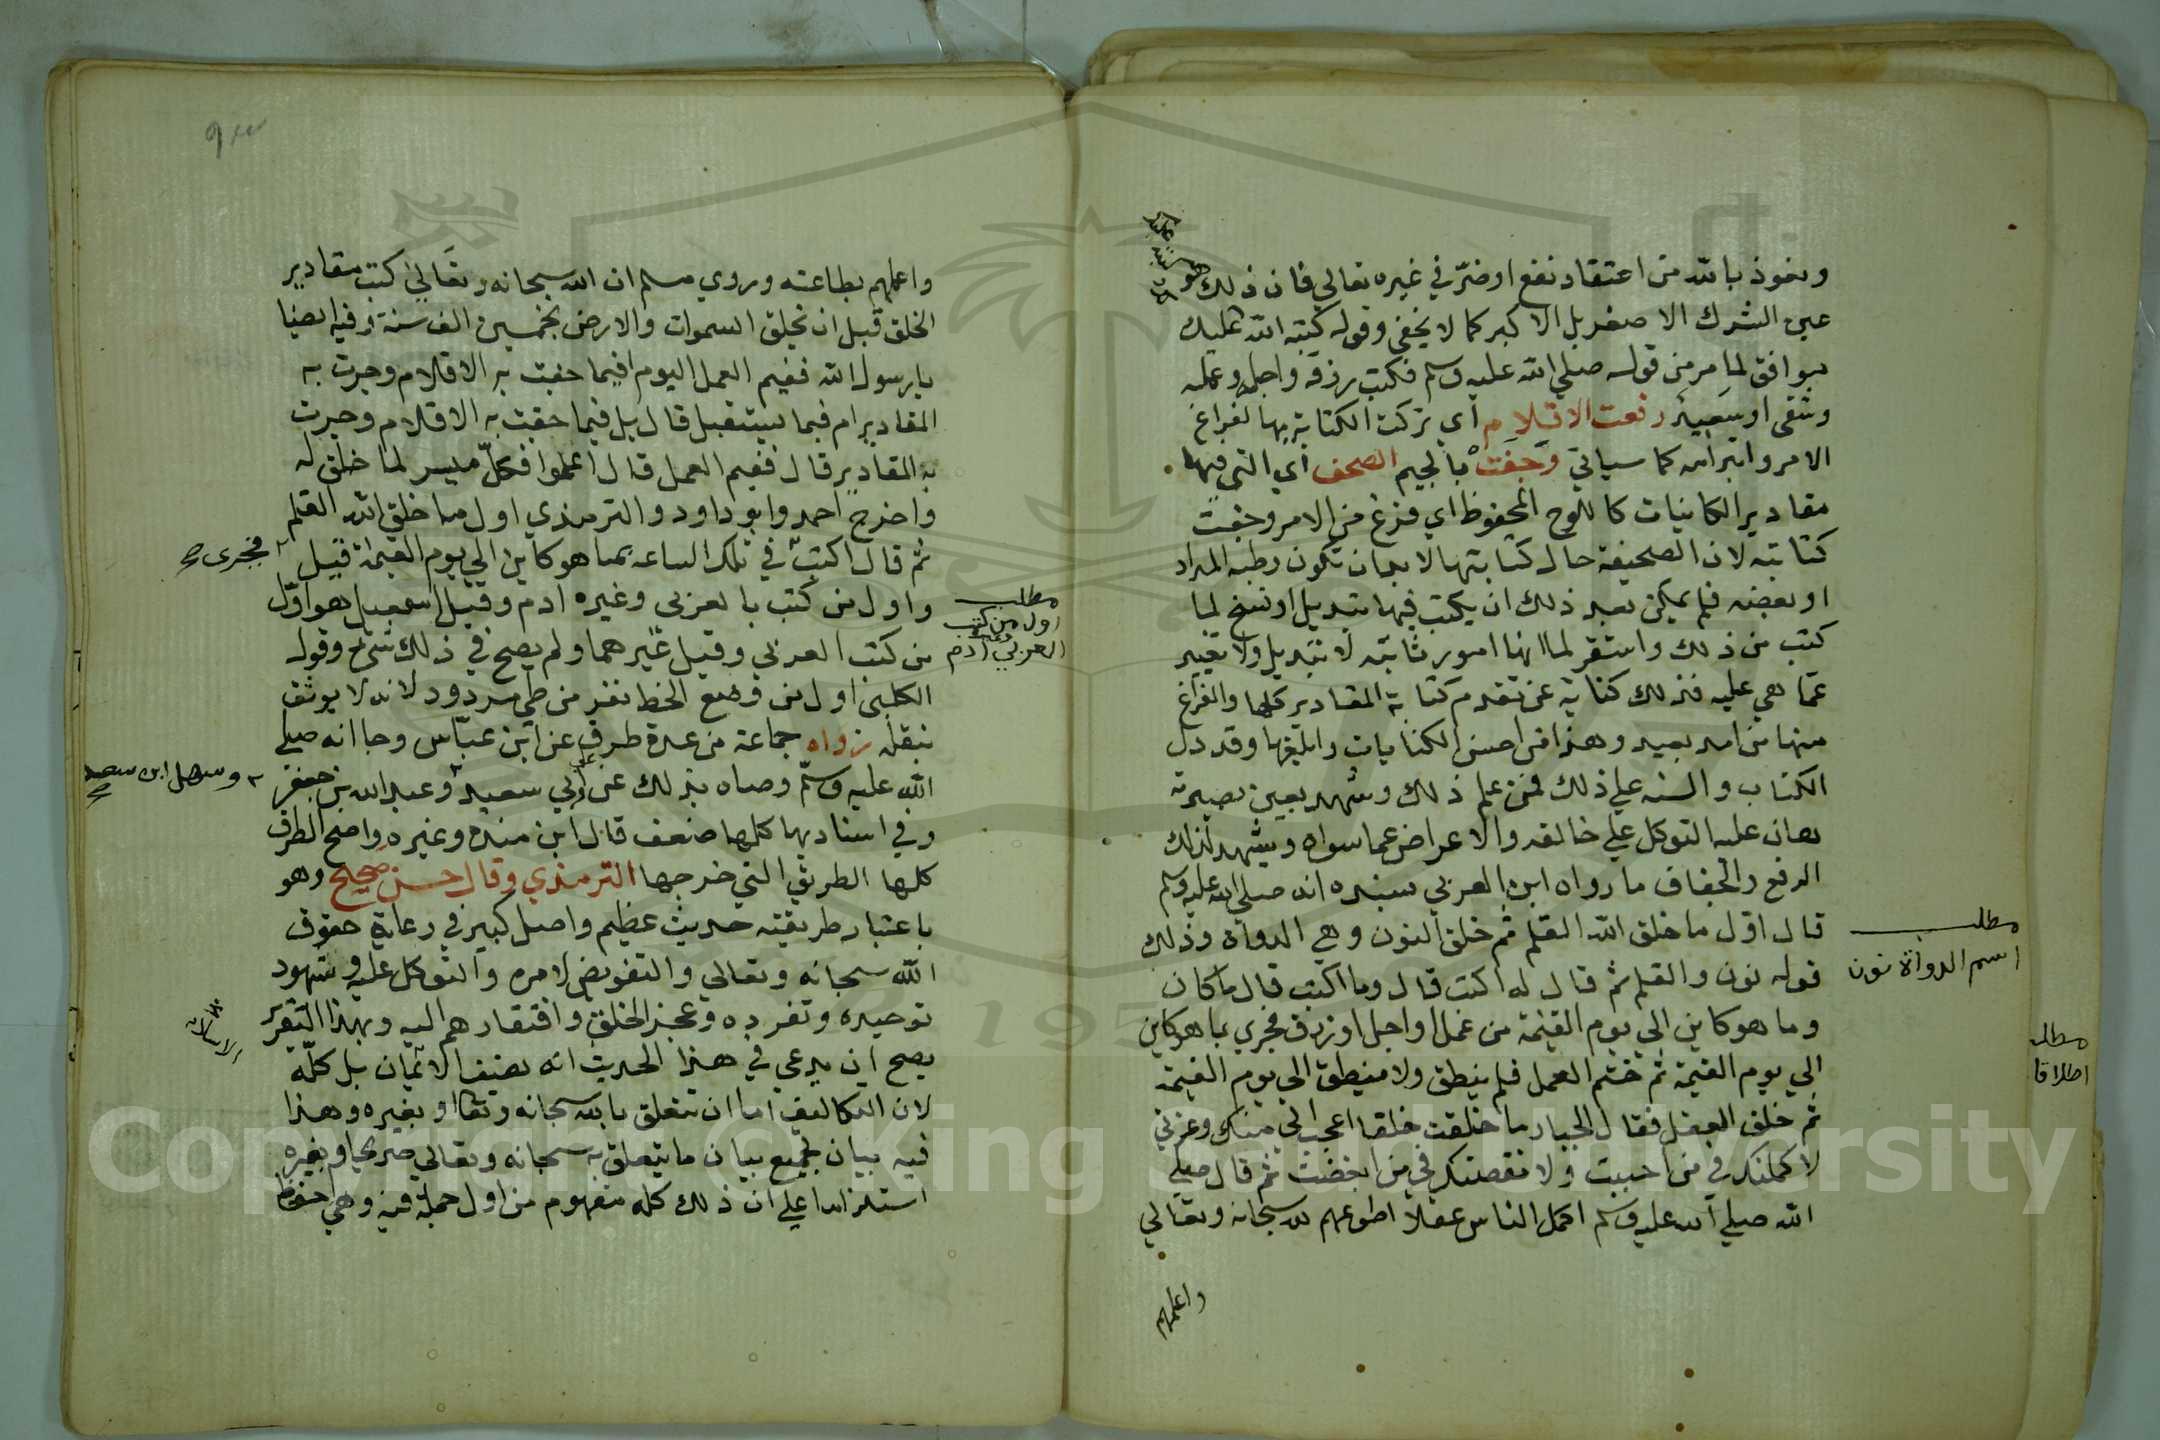 ونعوذ بالله من اعتقاد نفع او ضرّ في غيره تعالي فان ذلك هو
عين الشرك الاصغر بل الاكبر كما لا يخفي وقوله كتبه الله عليك
موافق لما مر من قوله صلي الله عليه وسلم فكتب رزقه واجله وعمله
وشقي او سعيد رفعت الاقلام اي تركت الكتابة بها لفراغ
الامر وانبرامه كما سياتي وجفت بالجيم الصحف اي التي فيها
مقادير الكاينات كاللوح المحفوظ اي فرغ من الامر وجفت
كتابته لان الصحيفة حال كتابتها لا بد ان تكون رطبة المداد
او بعضه فلم يمكن بعد ذلك ان يكتب فيها تبديل او نسخ لما
كتب من ذلك واستقر لما انها امور ثابتة لا تبديل ولا تغيير
عما هي عليه فذلك كناية عن تقدم كتابة المقادير كلها والفراغ
منها من امد بعيد وهذا من احسن الكنايات وابلغها وقد دل
الكتاب والسنه علي ذلك فمن علم ذلك وشهد بعين بصيرته
هان عليه التوكل علي خالقه والاعراض عما سواه ويشهد لذلك
الرفع والجفاف ما رواه ابن العربي بسنده انه صلي الله عليه وسلم
قال اول ما خلق الله القلم ثم خلق النون وهي الدواة وذلك
قوله نون والقلم ثم قال له اكتب قال وما اكتب قال ما كان
وما هو كاين الي يوم القيمة من عمل او اجل او رزق فجري بما هو كاين
الي يوم القيمة ثم ختم العمل فلم ينطق ولا منطق الي يوم القيمة
ثم خلق العقل فقال الجبار ما خلقت خلقا اعجب الي منك وعزتي
لاكملنك في من احببت ولا نقصنك في من ابغضت ثم قال صلي
الله صلي الله عليه وسلم اكمل الناس عقلا اطوعهم لله سبحانه وتعالي
واعلمهم
مطلب
اسم الدواة نون
مطلب
واعلمهم بطاعته وروي مسلم ان الله سبحانه وتعالي كتب مقادير
الخلق قبل ان يخلق السموات والارض بخمسين الف سنة وفيه ايضا
يا رسول الله ففيم العمل اليوم افيما جفت به الاقلام وجرت به
المقادير ام فيما يستقبل قال بل فيما جفت به الاقلام وجرت
به المقادير قال ففيم العمل قال اعملوا فكلّ ميسر لما خلق له
واخرج احمد وابو داود والترمذي اول ما خلق الله القلم
ثم قال اكتب في تلك الساعه بما هو كاين الي يوم القيمة قيل
فجري صح
واول من كتب بالعربي وغيره ادم وقيل اسمعيل هو اوّل
من كتب العربي وقيل غيرهما ولم يصح في ذلك شيء وقوله
الكلبي اول من وضع الخط نفر من طي مردود لانه لا يوثق
بنقله رواه جماعة من عدة طرق عن ابن عباس وجا انه صلي
الله عليه وسلم وصاه بذلك عن علي وابي سعيد وعبد الله بن جعفر
وسهل ابن سعد صح
وفي اسناديها كلها ضعف قال ابن منده وغيره واصح الطرق
كلها الطريق التي خرجها الترمذي وقال حسن صحيح وهو
باعتبار طريقته حديث عظيم واصل كبير في رعاية حقوق
الله سبحانه وتعالي والتفويض لامره والتوكل عليه وشهود
توحيده وتفرده وعجز الخلق وافتقارهم اليه وبهذا التقرير
يصح ان يدعي في هذا الحديث انه نصف الايمان بل كلّه
لان التكاليف اما ان تتعلق بالله سبحانه وتعا او بغيره وهذا
فيه بيان لجميع بيان ما يتعلق به سبحانه وتعالي صريحا وبغيره
استلزاما علي ان ذلك كله مفهوم من اول جملة فيه وهي احفظ
مطلب
اول من كتب
العربي ادم